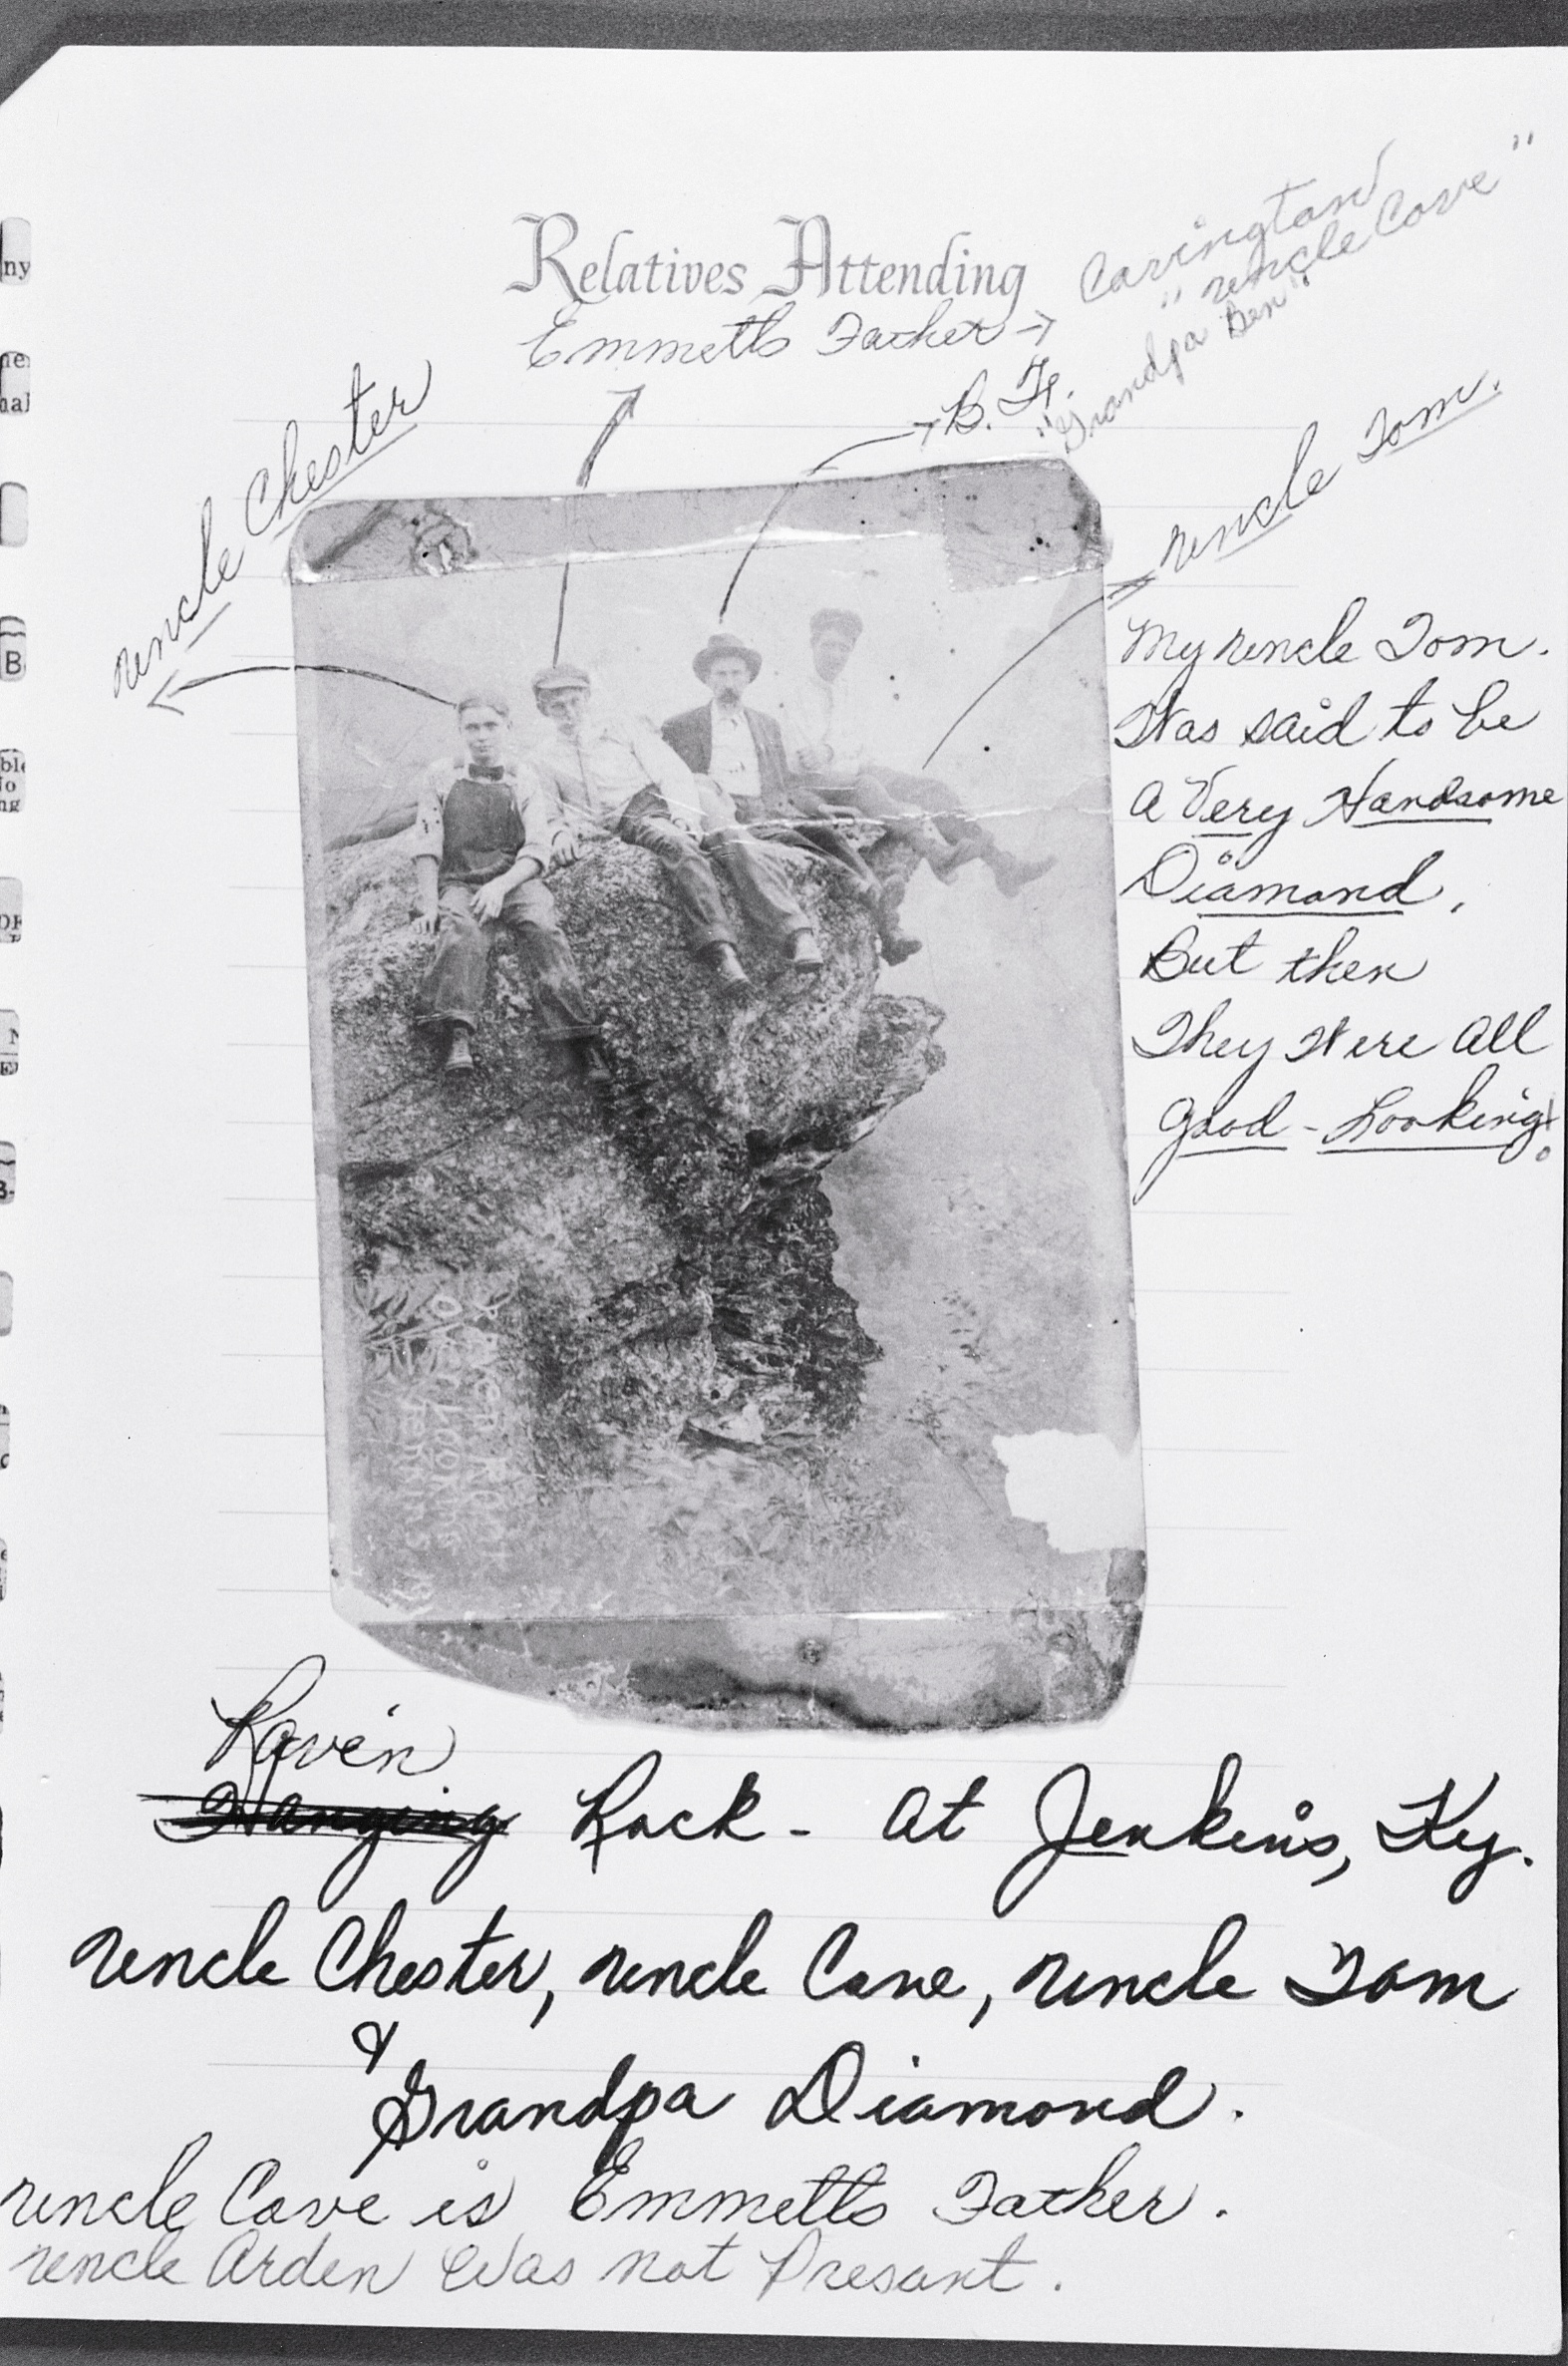 Relatives Attending
Emmetts Father → Carington
"uncle Cove"
B. F.
"Grandpa Ben"
uncle Chester
uncle Tom.
My uncle Tom.
Was said to be
a Very Handsome
Diamond,
But then
They Were all
Good-Looking!
Raven
Hanging Rock - at Jenkins, Ky.
uncle Chester, uncle Cove, uncle Tom
&
Grandpa Diamond.
uncle Cove is Emmetts Father.
uncle Arden Was not Presant.